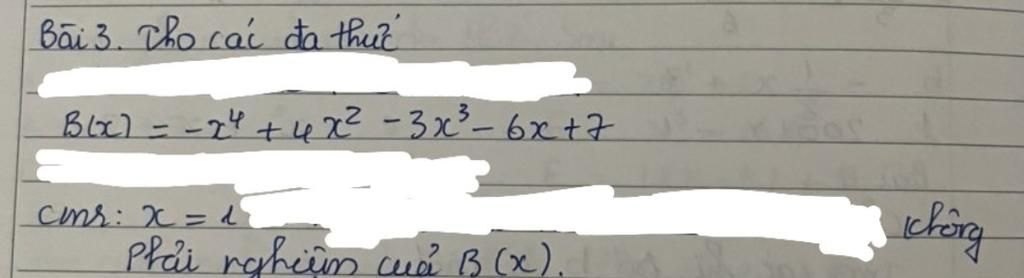 Bài 3. Cho các đa thức
B(x) = -x⁴ + 4x² - 3x³ - 6x + 7
cmr: x = 1 không
Phải nghiệm của B(x).